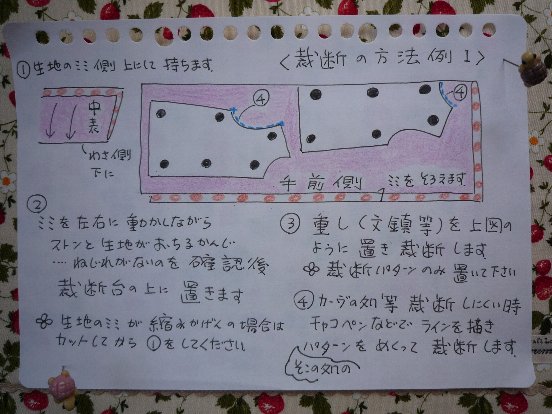 〈裁断の方法例1〉
①生地のミミ側上にして持ちます
中表
わさ側
下に
④
④
手前側
ミミをそろえます
②
ミミを左右に動かしながら
ストンと生地がおちるかんじ
‥‥ねじれがないのを確認後
裁断台の上に置きます
生地のミミが縮みかげんの場合は
カットしてから①をしてください
③重し(文鎮等)を上図の
ように置き裁断します
裁断パターンのみ置いて下さい
④カーブの処等裁断しにくい時
チャコペンなどでラインを描き
パターンをめくって裁断します
そこの処の